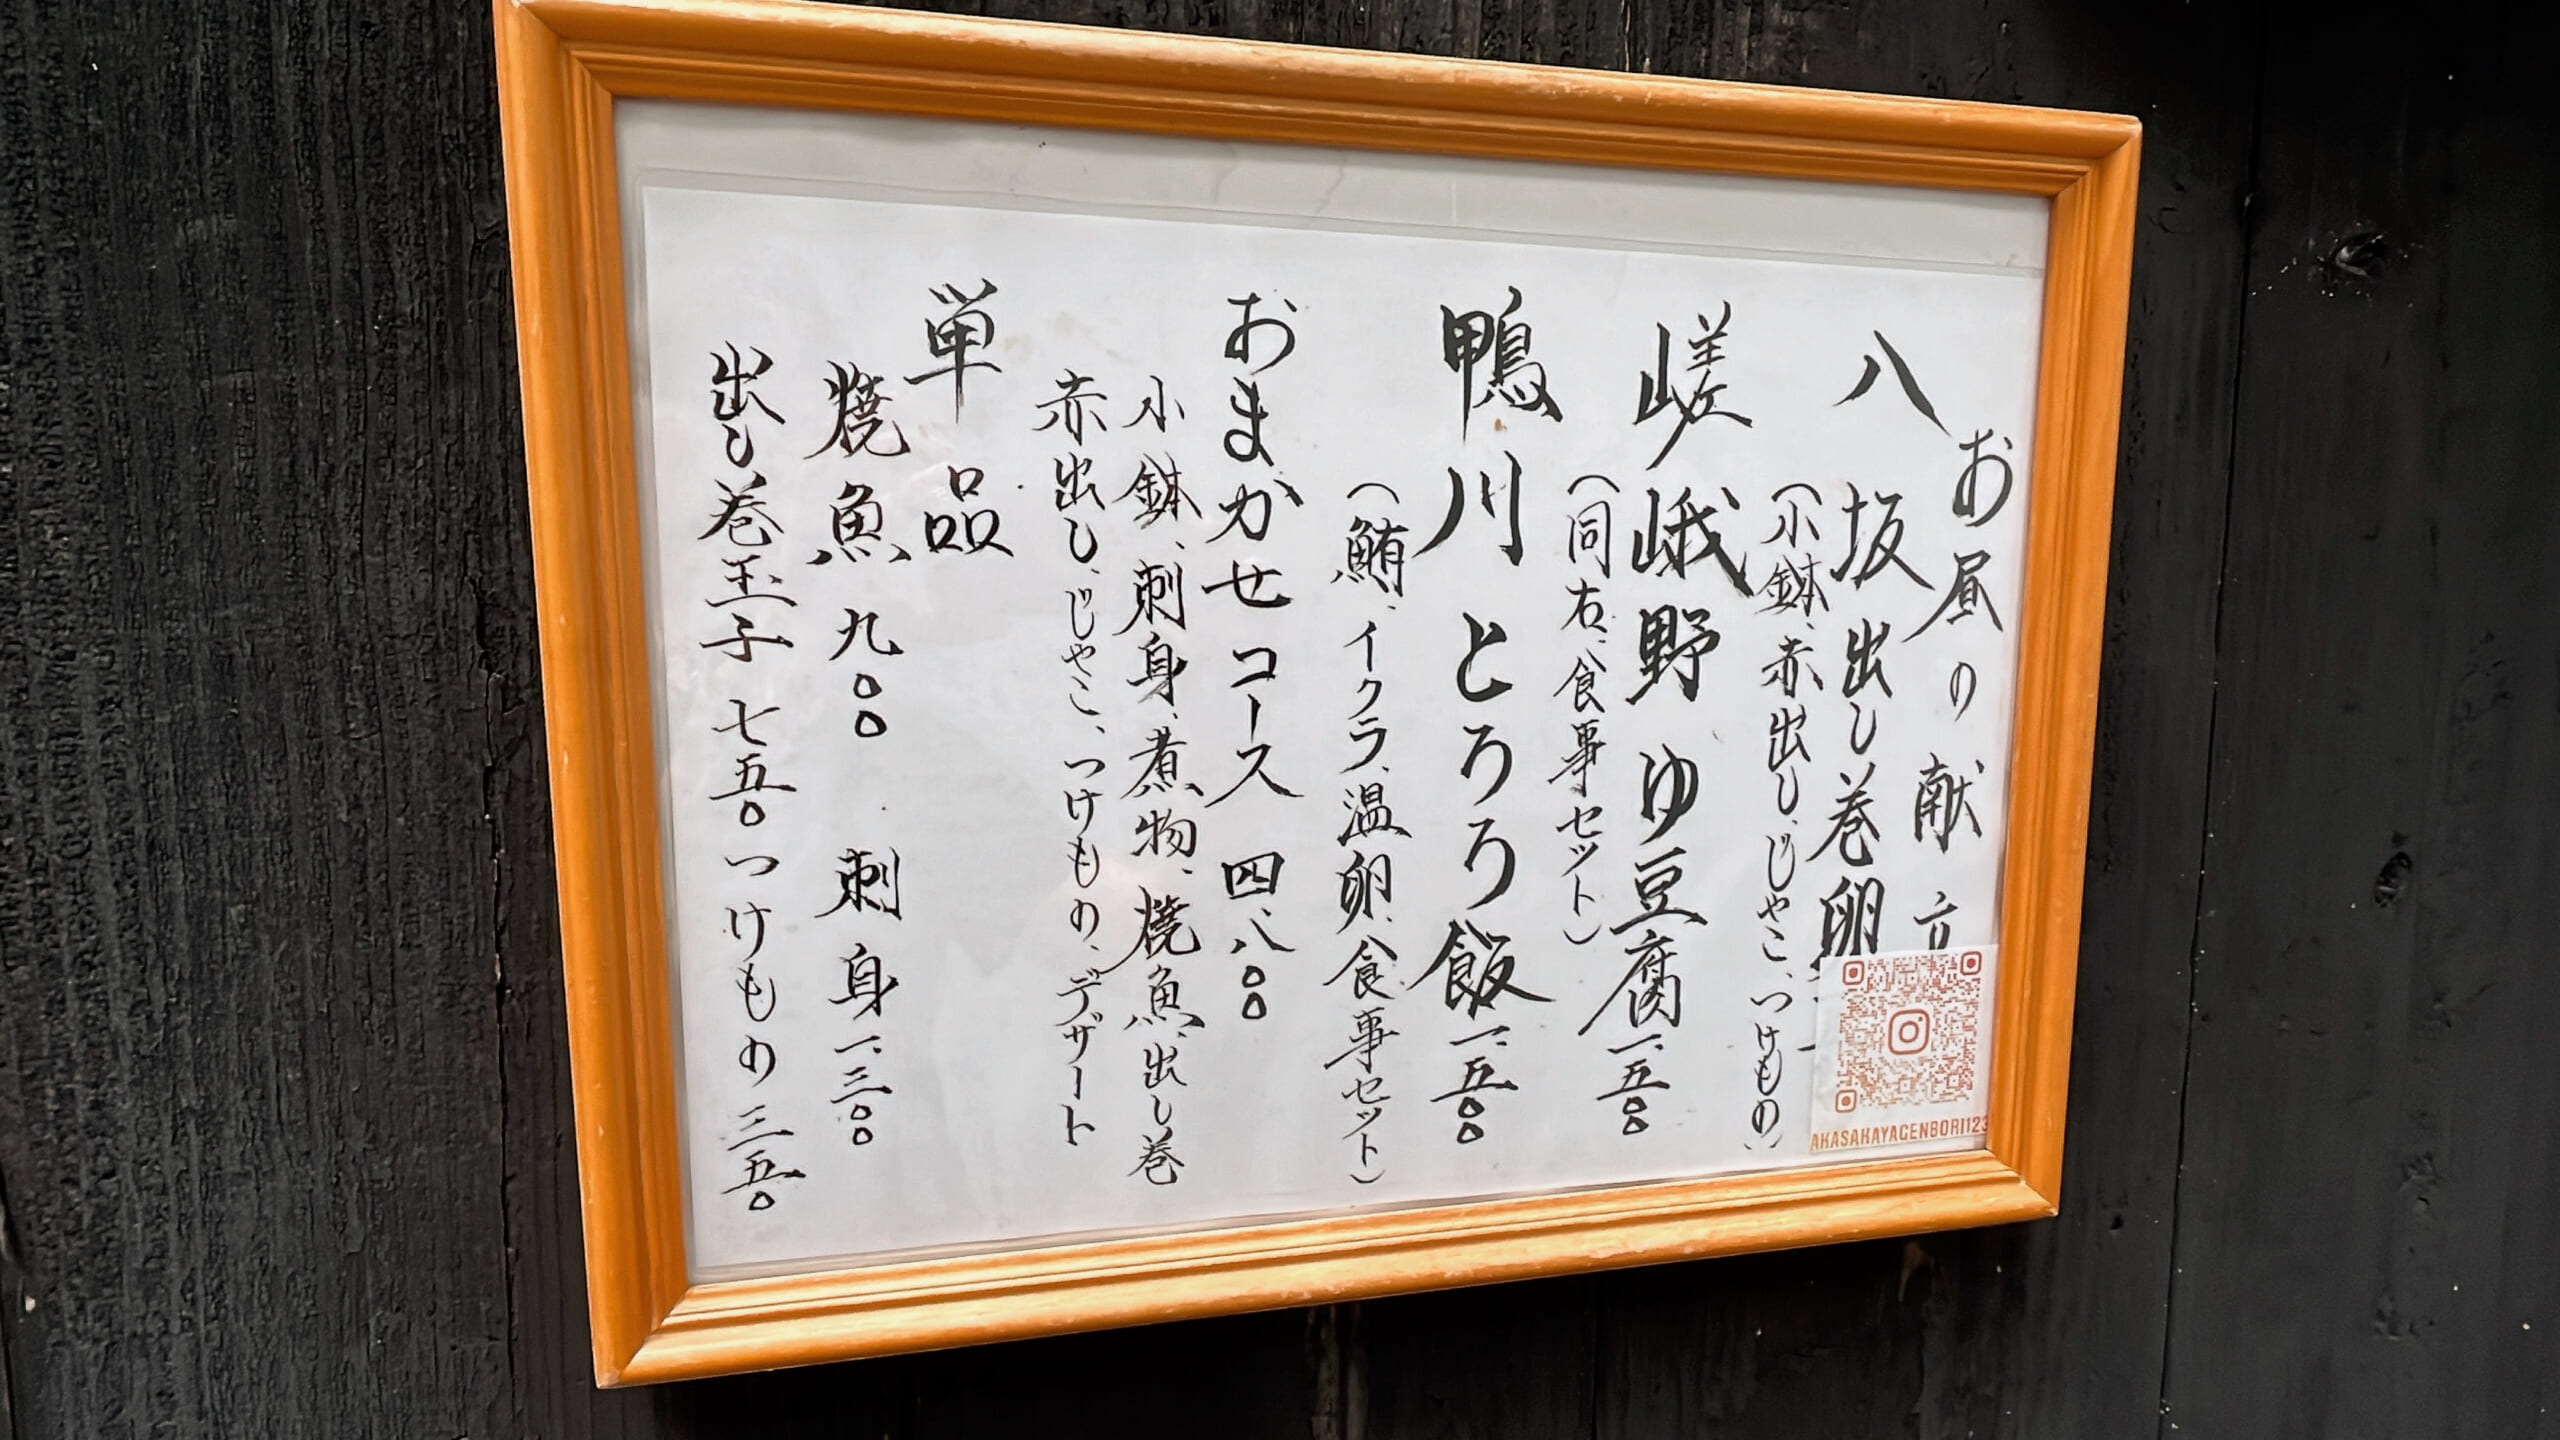 お昼の献立
八坂 出し巻卵
(小鉢、赤出し、じゃこ、つけもの)
嵯峨野 ゆ豆腐 一、五〇〇
(同右、食事セット)
鴨川 とろろ飯 一、五〇〇
(鮪、イクラ、温卵、食事セット)
おまかせコース 四、八〇〇
小鉢、刺身、煮物、焼魚、出し巻
赤出し、じゃこ、つけもの、デザート
単品
焼魚 九〇〇 刺身 一、三〇〇
出し巻玉子 七五〇 つけもの 三五〇
AKASAKAYAGENBORI123